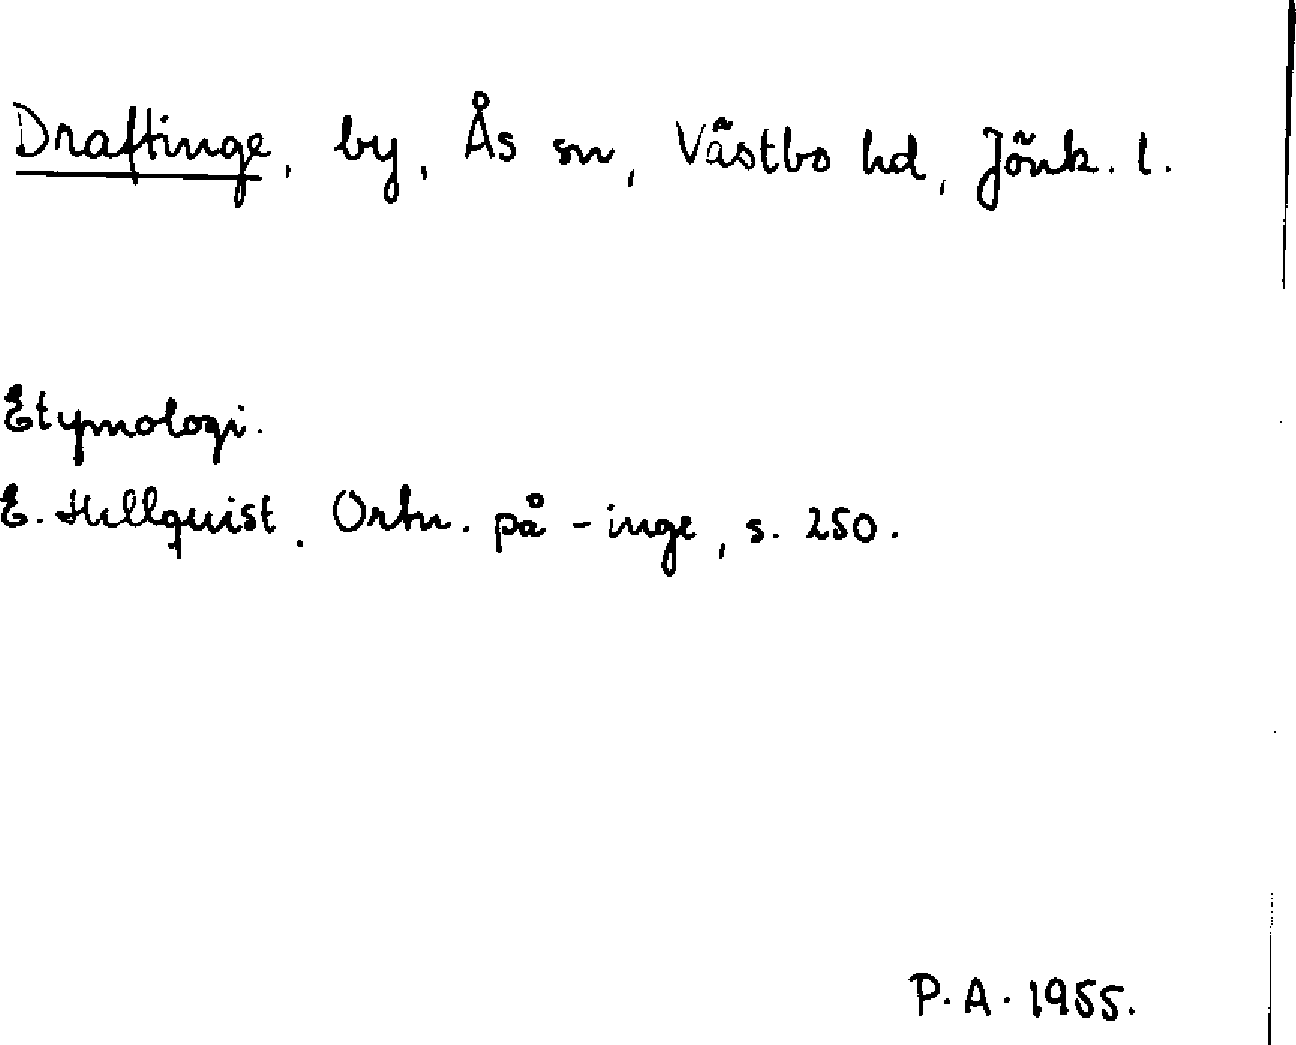 Draftinge, by, Ås sn, Västbo hd, Jönk. l.
Etymologi.
E. Hellquist. Ortn. på -inge, s. 250.
P. A. 1955.